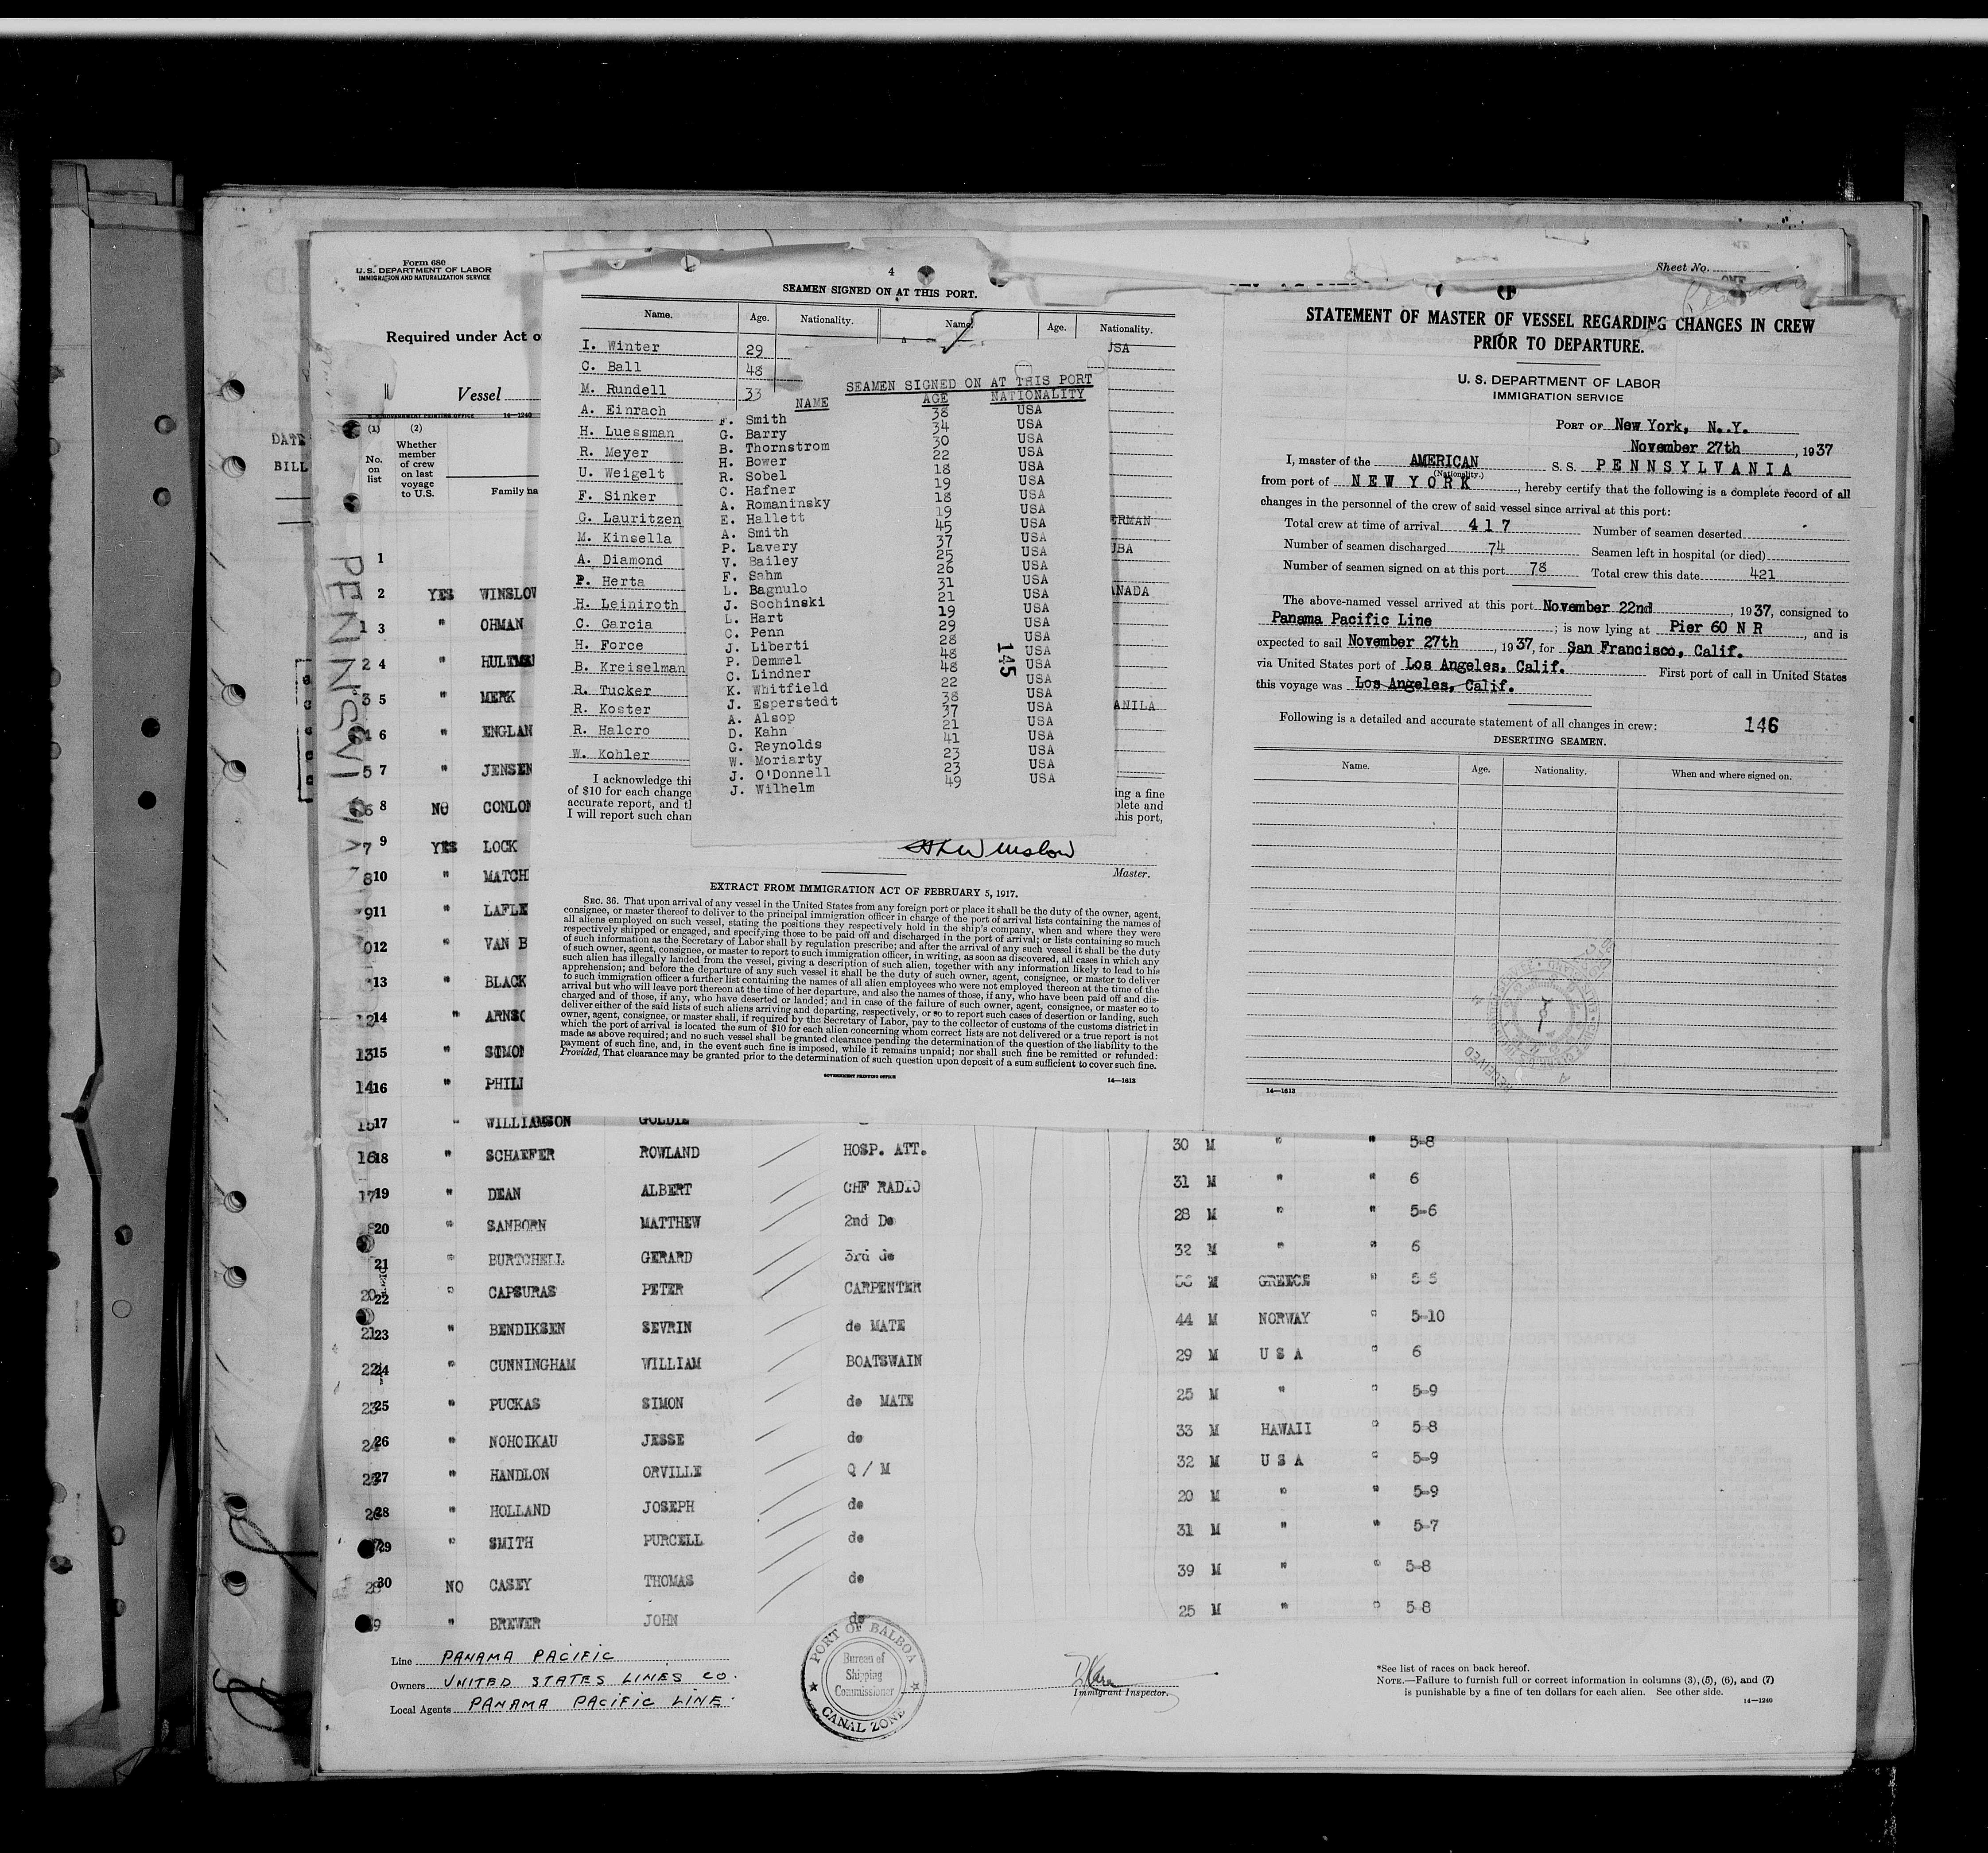 Form 680
U.S. DEPARTMENT OF LABOR
IMMIGRATION AND NATURALIZATION SERVICE
Required under Act o
Vessel
14—1240
DATE
BILL
(1)
(2)
No. on list
Whether member of crew on last voyage to U.S.
Family na
PENNSYLVANIA
4
SEAMEN SIGNED ON AT THIS PORT.
Name. Age. Nationality. Name. Age. Nationality.
I. Winter 29 USA
C. Ball 48
M. Rundell 33
A. Einrach
H. Luessman
R. Meyer
U. Weigelt
F. Sinker
G. Lauritzen ERMAN
M. Kinsella
A. Diamond UBA
P. Herta
H. Leiniroth ANADA
C. Garcia
H. Force
B. Kreiselman
R. Tucker
R. Koster ANILA
R. Halcro
W. Kohler
SEAMEN SIGNED ON AT THIS PORT
NAME AGE NATIONALITY
F. Smith 38 USA
G. Barry 34 USA
B. Thornstrom 30 USA
H. Bower 22 USA
R. Sobel 18 USA
C. Hafner 19 USA
A. Romaninsky 18 USA
E. Hallett 19 USA
A. Smith 45 USA
P. Lavery 37 USA
V. Bailey 25 USA
F. Sahm 26 USA
L. Bagnulo 31 USA
J. Sochinski 21 USA
L. Hart 19 USA
C. Penn 29 USA
J. Liberti 28 USA
P. Demmel 48 USA
C. Lindner 48 USA
K. Whitfield 22 USA
J. Esperstedt 38 USA
A. Alsop 37 USA
D. Kahn 21 USA
G. Reynolds 41 USA
W. Moriarty 23 USA
J. O'Donnell 23 USA
J. Wilhelm 49 USA
145
I acknowledge thi
of $10 for each change ing a fine
accurate report, and th plete and
I will report such chan his port,
Winslow
Master.
EXTRACT FROM IMMIGRATION ACT OF FEBRUARY 5, 1917.
SEC. 36. That upon arrival of any vessel in the United States from any foreign port or place it shall be the duty of the owner, agent,
consignee, or master thereof to deliver to the principal immigration officer in charge of the port of arrival lists containing the names of
all aliens employed on such vessel, stating the positions they respectively hold in the ship's company, when and where they were
respectively shipped or engaged, and specifying those to be paid off and discharged in the port of arrival; or lists containing so much
of such information as the Secretary of Labor shall by regulation prescribe; and after the arrival of any such vessel it shall be the duty
of such owner, agent, consignee, or master to report to such immigration officer, in writing, as soon as discovered, all cases in which any
such alien has illegally landed from the vessel, giving a description of such alien, together with any information likely to lead to his
apprehension; and before the departure of any such vessel it shall be the duty of such owner, agent, consignee, or master to deliver
to such immigration officer a further list containing the names of all alien employees who were not employed thereon at the time of the
arrival but who will leave port thereon at the time of her departure, and also the names of those, if any, who have been paid off and dis-
charged and of those, if any, who have deserted or landed; and in case of the failure of such owner, agent, consignee, or master so to
deliver either of the said lists of such aliens arriving and departing, respectively, or so to report such cases of desertion or landing, such
owner, agent, consignee, or master shall, if required by the Secretary of Labor, pay to the collector of customs of the customs district in
which the port of arrival is located the sum of $10 for each alien concerning whom correct lists are not delivered or a true report is not
made as above required; and no such vessel shall be granted clearance pending the determination of the question of the liability to the
payment of such fine, and, in the event such fine is imposed, while it remains unpaid; nor shall such fine be remitted or refunded:
Provided, That clearance may be granted prior to the determination of such question upon deposit of a sum sufficient to cover such fine.
GOVERNMENT PRINTING OFFICE 14—1613
Sheet No.
STATEMENT OF MASTER OF VESSEL REGARDING CHANGES IN CREW
PRIOR TO DEPARTURE.
U. S. DEPARTMENT OF LABOR
IMMIGRATION SERVICE
PORT OF New York, N.Y.
November 27th, 1937
I, master of the AMERICAN S. S. PENNSYLVANIA
(Nationality.)
from port of NEW YORK, hereby certify that the following is a complete record of all
changes in the personnel of the crew of said vessel since arrival at this port:
Total crew at time of arrival 417 Number of seamen deserted
Number of seamen discharged 74 Seamen left in hospital (or died)
Number of seamen signed on at this port 78 Total crew this date 421
The above-named vessel arrived at this port November 22nd, 1937, consigned to
Panama Pacific Line; is now lying at Pier 60 N R, and is
expected to sail November 27th, 1937, for San Francisco, Calif.
via United States port of Los Angeles, Calif. First port of call in United States
this voyage was Los Angeles, Calif.
Following is a detailed and accurate statement of all changes in crew: 146
DESERTING SEAMEN.
Name. Age. Nationality. When and where signed on.
RECEIVED
14—1613
1
2 YES WINSLOW
1 3 " OHMAN
2 4 " HULTMAN
3 5 " MERK
4 6 " ENGLAN
5 7 " JENSEN
6 8 NO CONLON
7 9 YES LOCK
8 10 " MATCH
9 11 " LAFLE
12 " VAN B
13 " BLACK
12 14 " ARNSO
13 15 " SIMON
14 16 " PHILI
15 17 " WILLIAMSON GOLDIE
16 18 " SCHAEFER ROWLAND HOSP. ATT. 30 M " " 5-8
17 19 " DEAN ALBERT CHF RADIO 31 M " " 6
20 " SANBORN MATTHEW 2nd Do 28 M " " 5-6
21 " BURTCHELL GERARD 3rd do 32 M " " 6
20 22 " CAPSURAS PETER CARPENTER 56 M GREECE " 5 5
21 23 " BENDIKSEN SEVRIN do MATE 44 M NORWAY " 5-10
22 24 " CUNNINGHAM WILLIAM BOATSWAIN 29 M U S A " 6
23 25 " PUCKAS SIMON do MATE 25 M " " 5-9
24 26 " NOHOIKAU JESSE do 33 M HAWAII " 5-8
25 27 " HANDLON ORVILLE Q / M 32 M U S A " 5-9
26 28 " HOLLAND JOSEPH do 20 M " " 5-9
29 " SMITH PURCELL do 31 M " " 5-7
28 30 NO CASEY THOMAS do 39 M " " 5-8
9 " BREWER JOHN do 25 M " " 5 8
Line PANAMA PACIFIC
Owners UNITED STATES LINES CO.
Local Agents PANAMA PACIFIC LINE.
PORT OF BALBOA
Bureau of
Shipping
Commissioner
CANAL ZONE
Immigrant Inspector.
*See list of races on back hereof.
NOTE.—Failure to furnish full or correct information in columns (3), (5), (6), and (7)
is punishable by a fine of ten dollars for each alien. See other side.
14—1240